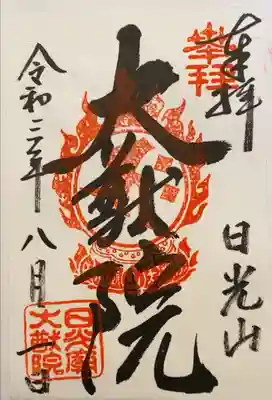 奉拝
奉拝
日光山
大猷院
令和二年八月一日
大猷院